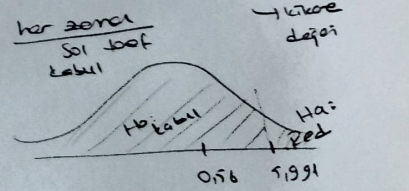 her zaman
Sol taraf
kabul
→ kikare
değeri
H₀: kabul
Ha:
Red
0,56
5,991